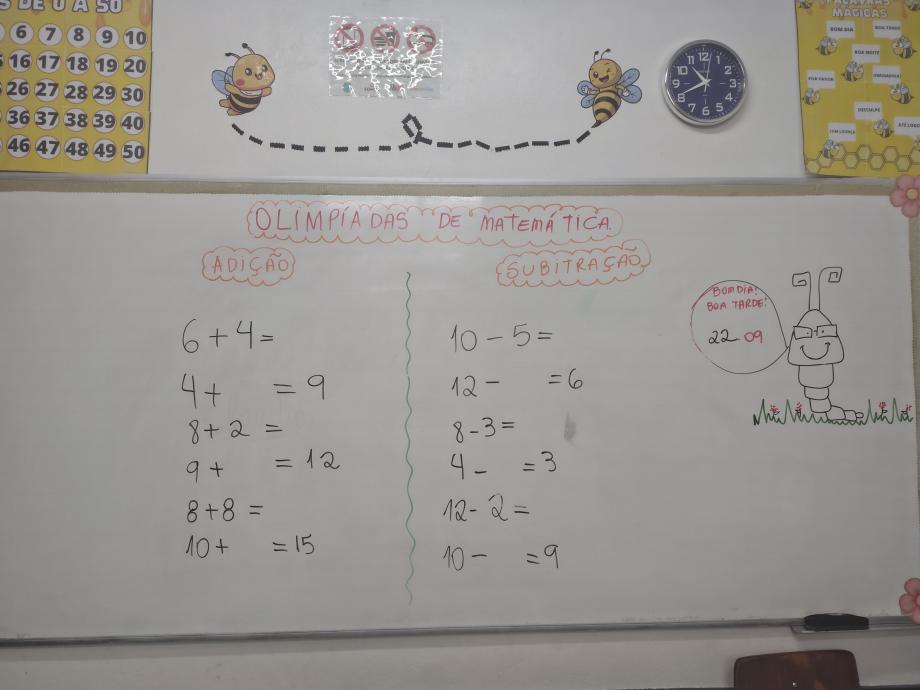 S DE 0 A 50
6 7 8 9 10
16 17 18 19 20
26 27 28 29 30
36 37 38 39 40
46 47 48 49 50
12 1 2 3 4 5 6 7 8 9 10 11
PALAVRAS
MÁGICAS
BOM DIA
BOA TARDE
BOA NOITE
POR FAVOR
OBRIGADO(A)
DESCULPE
COM LICENÇA
ATÉ LOGO
OLIMPÍADAS DE MATEMÁTICA.
ADIÇÃO
6+4=
4+ =9
8+2 =
9+ =12
8+8 =
10+ =15
SUBITRAÇÃO
10-5=
12- =6
8-3=
4- =3
12-2=
10- =9
BOM DIA!
BOA TARDE!
22-09